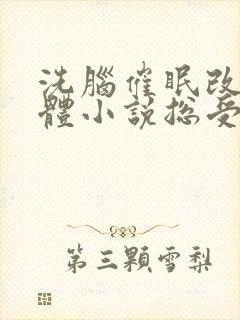 洗腦催眠改
體小說總受
第三顆雪梨